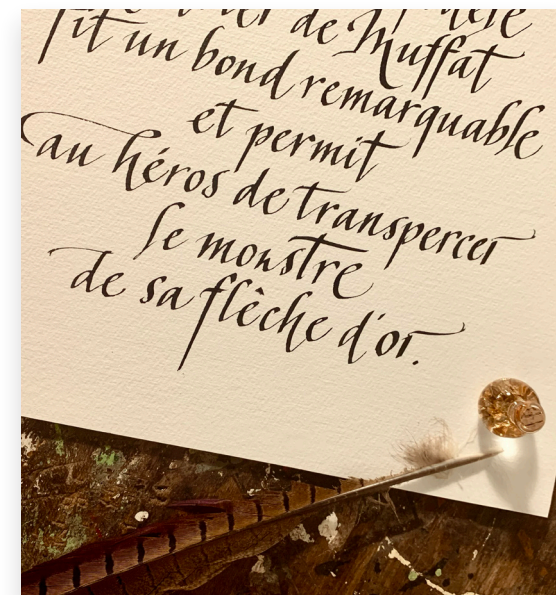 de
fit un bond remarquable
de Muffat
et permit
au héros de transpercer
le monstre
de sa flèche d'or.